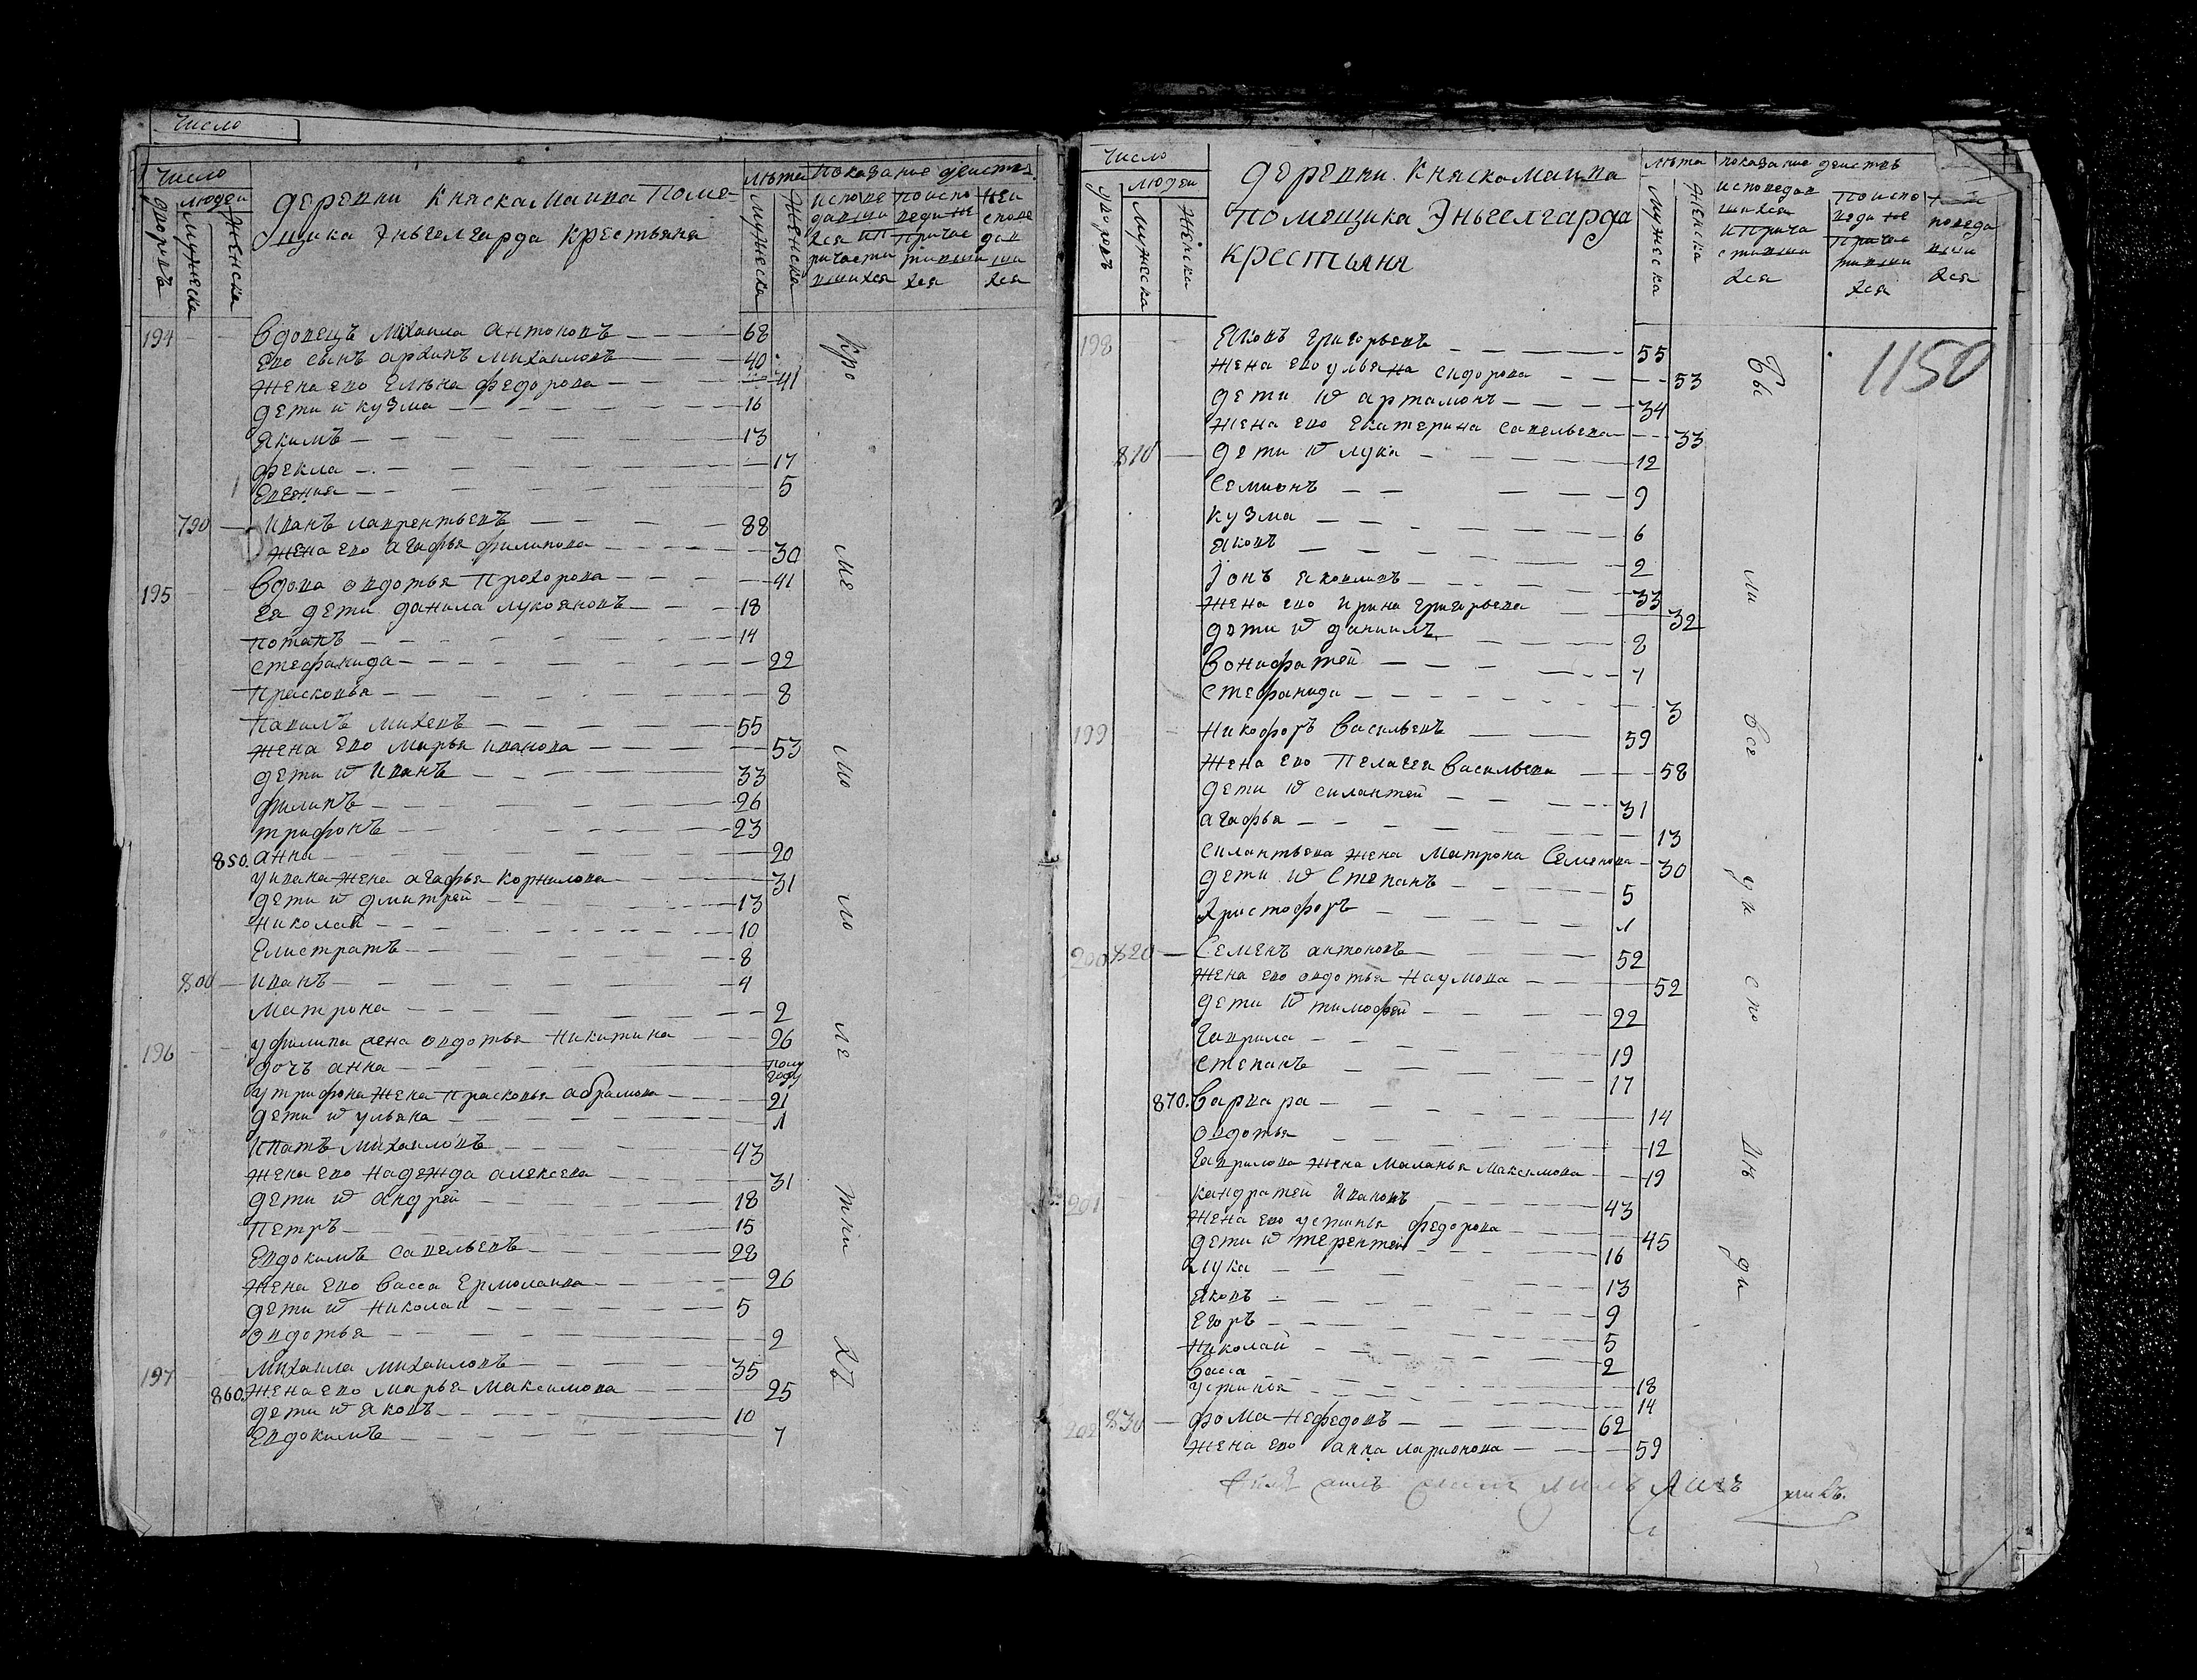 Число
Число
людеи
дворовъ
Мужеска
Женска
деревни Княскамаина Поме-
щика Эньгелгарда крестьяня
лѣта
Мужеска
Женска
Показание деиств
исповедавшихся и причастившихся
по исповеди не причастившихся
неисповедавшихся
194 Вдовецъ Михаила антоновъ 68
Его сынъ архипъ михаиловъ 40
жена его елѣна федорова 41
дети ѿ кузма 16
якимъ 13
фекла 17
Евгения 5
790 Иванъ лаврентьевъ 88
жена его агафья филипова 30
195 Вдова овдотья прохорова 41
ея дети данила лукояновъ 18
потапъ 14
стефанида 22
прасковья 8
павилъ михевъ 55
жена его марья иванова 53
дети ѿ иванъ 33
филипъ 26
трифонъ 23
850. анна 20
уивана жена агафья корнилова 31
дети ѿ дмитрей 13
николаи 10
Елистратъ 8
800 иванъ 4
матрона 2
196 уфилипа жена овдотья никитина 26
дочъ анна полу году
утрифона жена прасковья абрамова 21
дети ѿ ульяна 1
Ипатъ михаиловъ 43
жена его надежда алексева 31
дети ѿ андрей 18
петръ 15
Евдокимъ савельевъ 28
жена его васса Ермолаива 26
дети ѿ николаи 5
овдотья 2
197 михаила михаиловъ 35
860. жена его марья максимова 25
дети ѿ яковъ 10
Евдокимъ 7
Кро
ме
шо
ло
ле
тни
хъ
Число
людеи
дворовъ
Мужеска
Женска
деревни Княскамаина
помещика Эньгелгарда
крестьяня
лѣта
Мужеска
Женска
показание деиствъ
исповедавшихся и причастившихся
по исповеди не причастившихся
поведавшихся
1150
198 григорьевъ 55
жена его ульяна сидорова 53
дети ѿ артамонъ 34
жена его екатерина савельева 33
810 дети ѿ лука 12
семионъ 9
кузма 6
яковъ 2
яковливъ 33
жена его ирина григорьева 32
дети ѿ даниилъ 8
вонифатей 7
стефанида 3
199 никофоръ васильевъ 59
жена его пелагеи васильева 58
дети ѿ силантей 31
агафья 13
силантьева жена матрона семенова 30
дети ѿ степанъ 5
христофоръ 1
200 820 Семенъ антоновъ 52
жена его овдотья наумова 52
дети ѿ тимофей 22
гаврила 19
степанъ 17
870. варвара 14
овдотья 12
гаврилова жена маланья максимова 19
201 кандратей ивановъ 43
жена его устинья федорова 45
дети ѿ терентей 16
лука 13
яковъ 9
егоръ 5
николаи 2
васса 18
устинья 14
202 830 фома нефедовъ 62
жена его анна ларионова 59
Бы
ли
все
уи
спо
ди